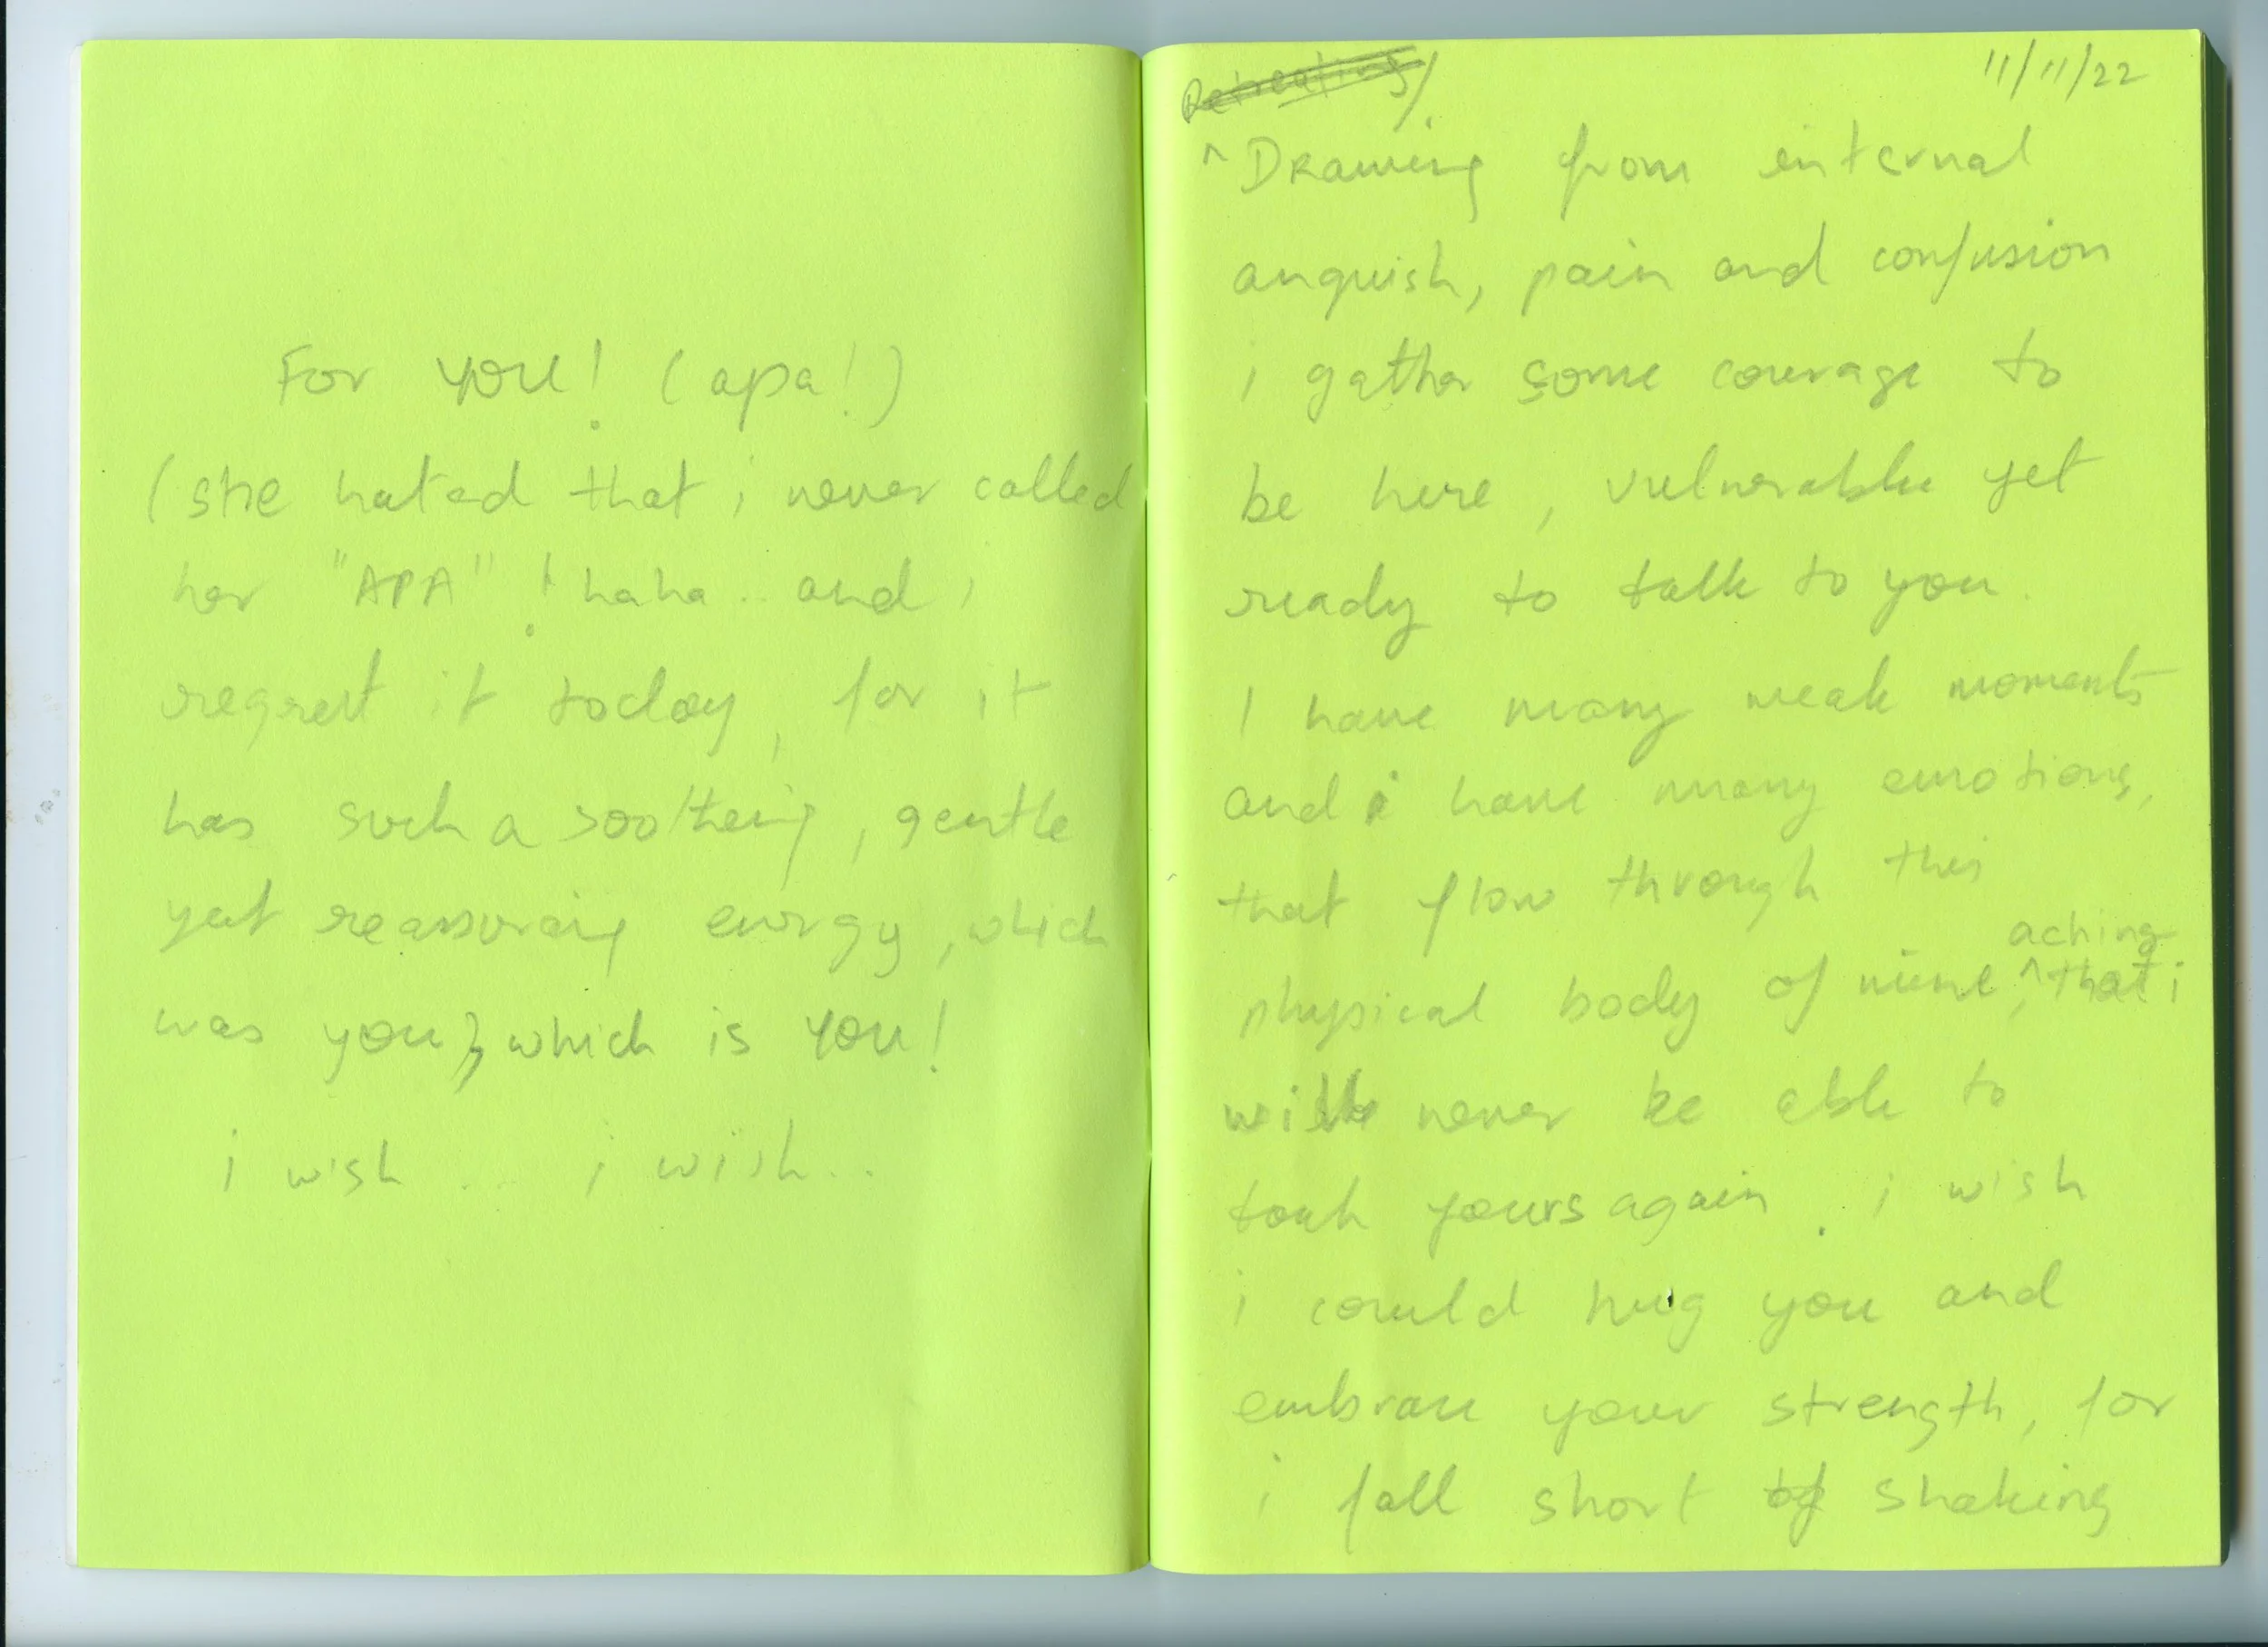 For you! (apa!)
(she hated that i never called
her "APA"! haha.. and i
regret it today, for it
has such a soothing, gentle
yet reassuring energy, which
was you, which is you!
i wish ... i wish...
Retreating/
11/11/22
^ Drawing from internal
anguish, pain and confusion
i gather some courage to
be here, vulnerable yet
ready to talk to you.
I have many weak moments
and i have many emotions,
that flow through this
aching
physical body of mine, ^ that i
will never be able to
touch yours again. i wish
i could hug you and
embrace your strength, for
i fall short of shaking